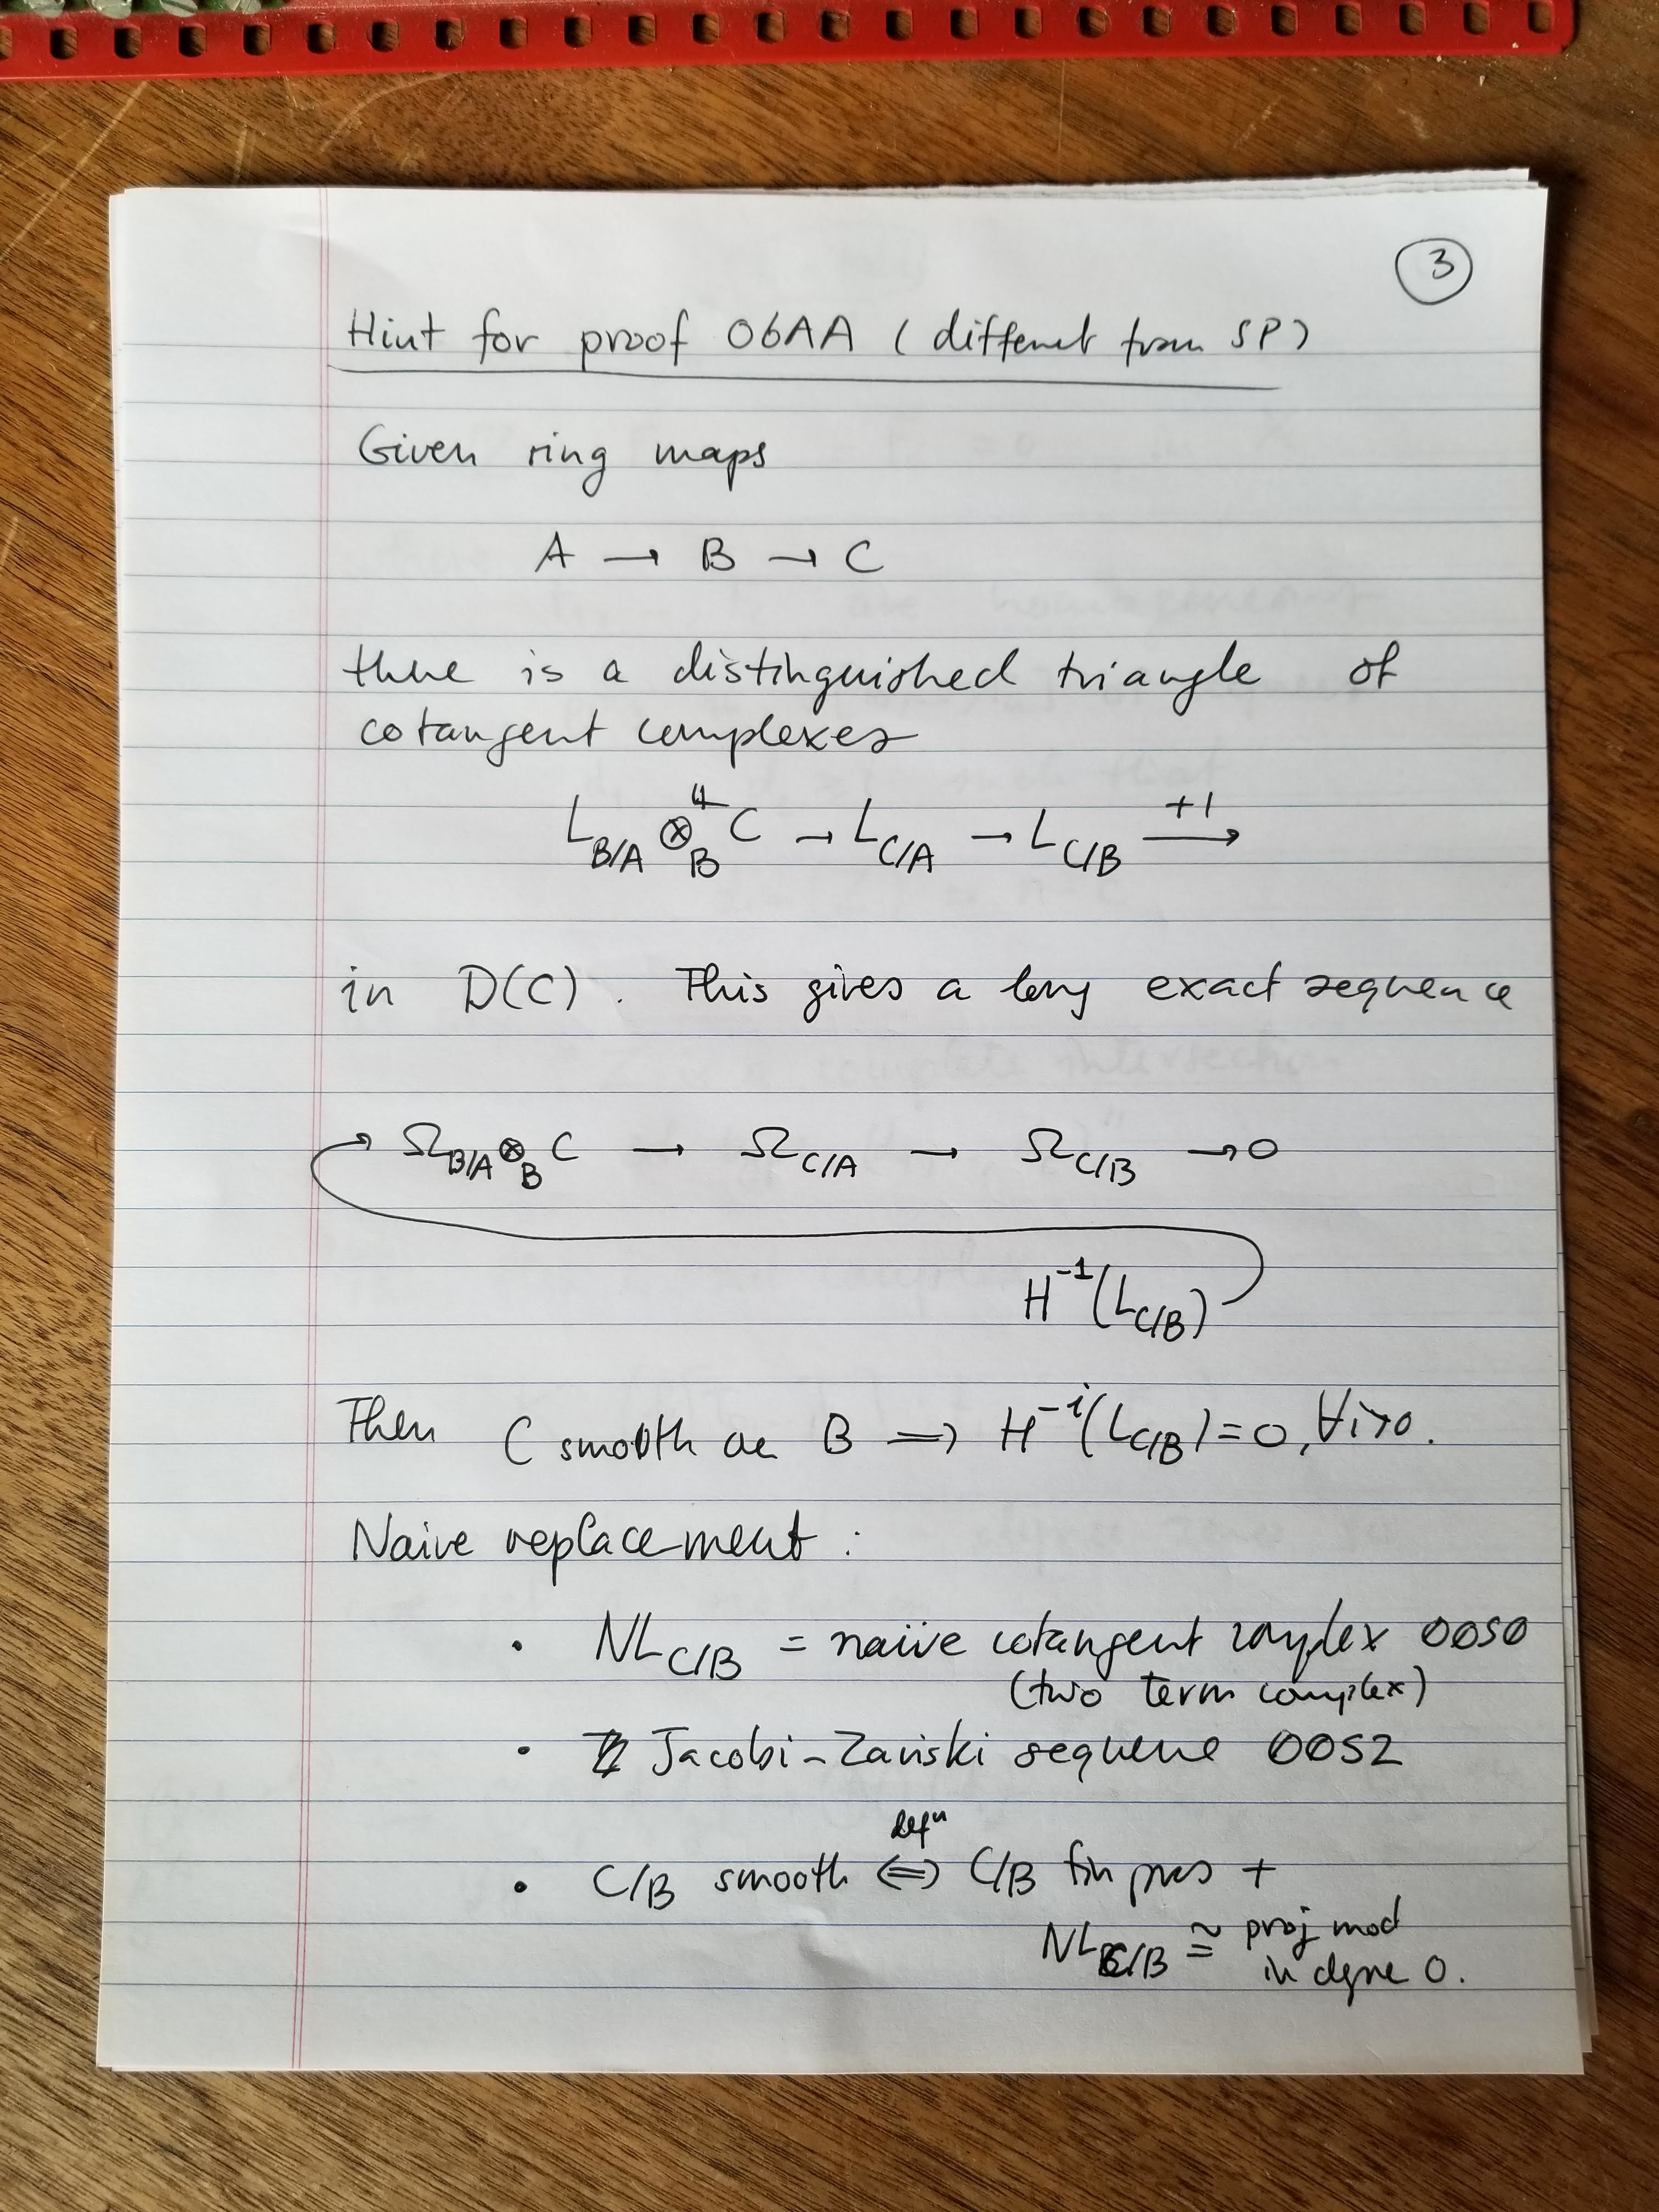 3
Hint for proof 06AA (different from SP)
Given ring maps
A → B → C
there is a distinguished triangle of
cotangent complexes
L_{B/A} ⊗^𝕃_B C → L_{C/A} → L_{C/B} →^{+1}
in D(C). This gives a long exact sequence
→ Ω_{B/A} ⊗_B C → Ω_{C/A} → Ω_{C/B} → 0
H^{-1}(L_{C/B})
Then C smooth over B ⟹ H^{-i}(L_{C/B}) = 0, ∀i>0.
Naive replacement :
• NL_{C/B} = naive cotangent complex 00S0
(two term complex)
• Jacobi-Zariski sequence 00S2
• C/B smooth ⟺^{defn} C/B fin pres +
NL_{C/B} ≅ proj mod
in degree 0.